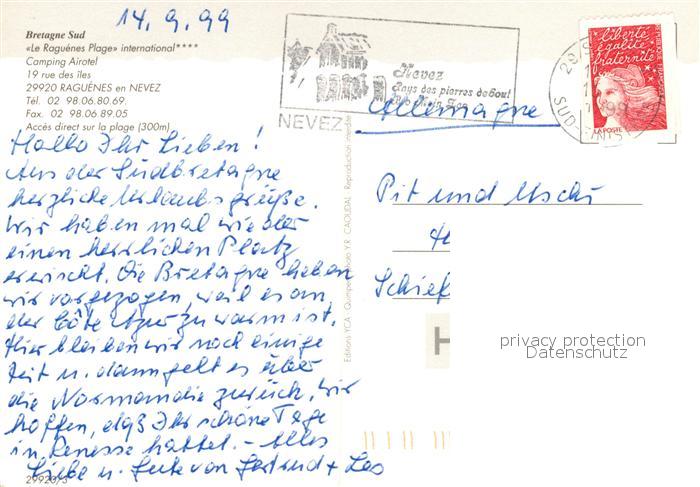 14.9.99
Bretagne Sud
«Le Raguénes Plage» international****
Camping Airotel
19 rue des îles
29920 RAGUÉNES en NEVEZ
Tél. 02 98.06.80.69.
Fax. 02 98.06.89.05
Accès direct sur la plage (300m)
Hallo Ihr Lieben!
Aus der Südbretagne
herzliche Urlaubsgrüße.
Wir haben mal wieder
einen herrlichen Platz
erwischt. Die Bretagne haben
wir vorgezogen, weil es an
der Côte Azur zu warm ist.
Hier bleiben wir noch einige
Zeit u. dann geht es über
die Normandie zurück. Wir
hoffen, daß Ihr schöne Tage
in Renesse hattet. - Alles
Liebe u. Gute von Gertrud + Leo
29920/3
Editions YCA - Quimper Photo Y.R. CAOUDAL Reproduction interdite
Nevez
Pays des pierres debout
NEVEZ
liberté
égalité
fraternité
RÉPUBLIQUE FRANÇAISE
LA POSTE
29
SUD-FINIS
Allemagne
Pit und Uschi
Schief
H
privacy protection
Datenschutz